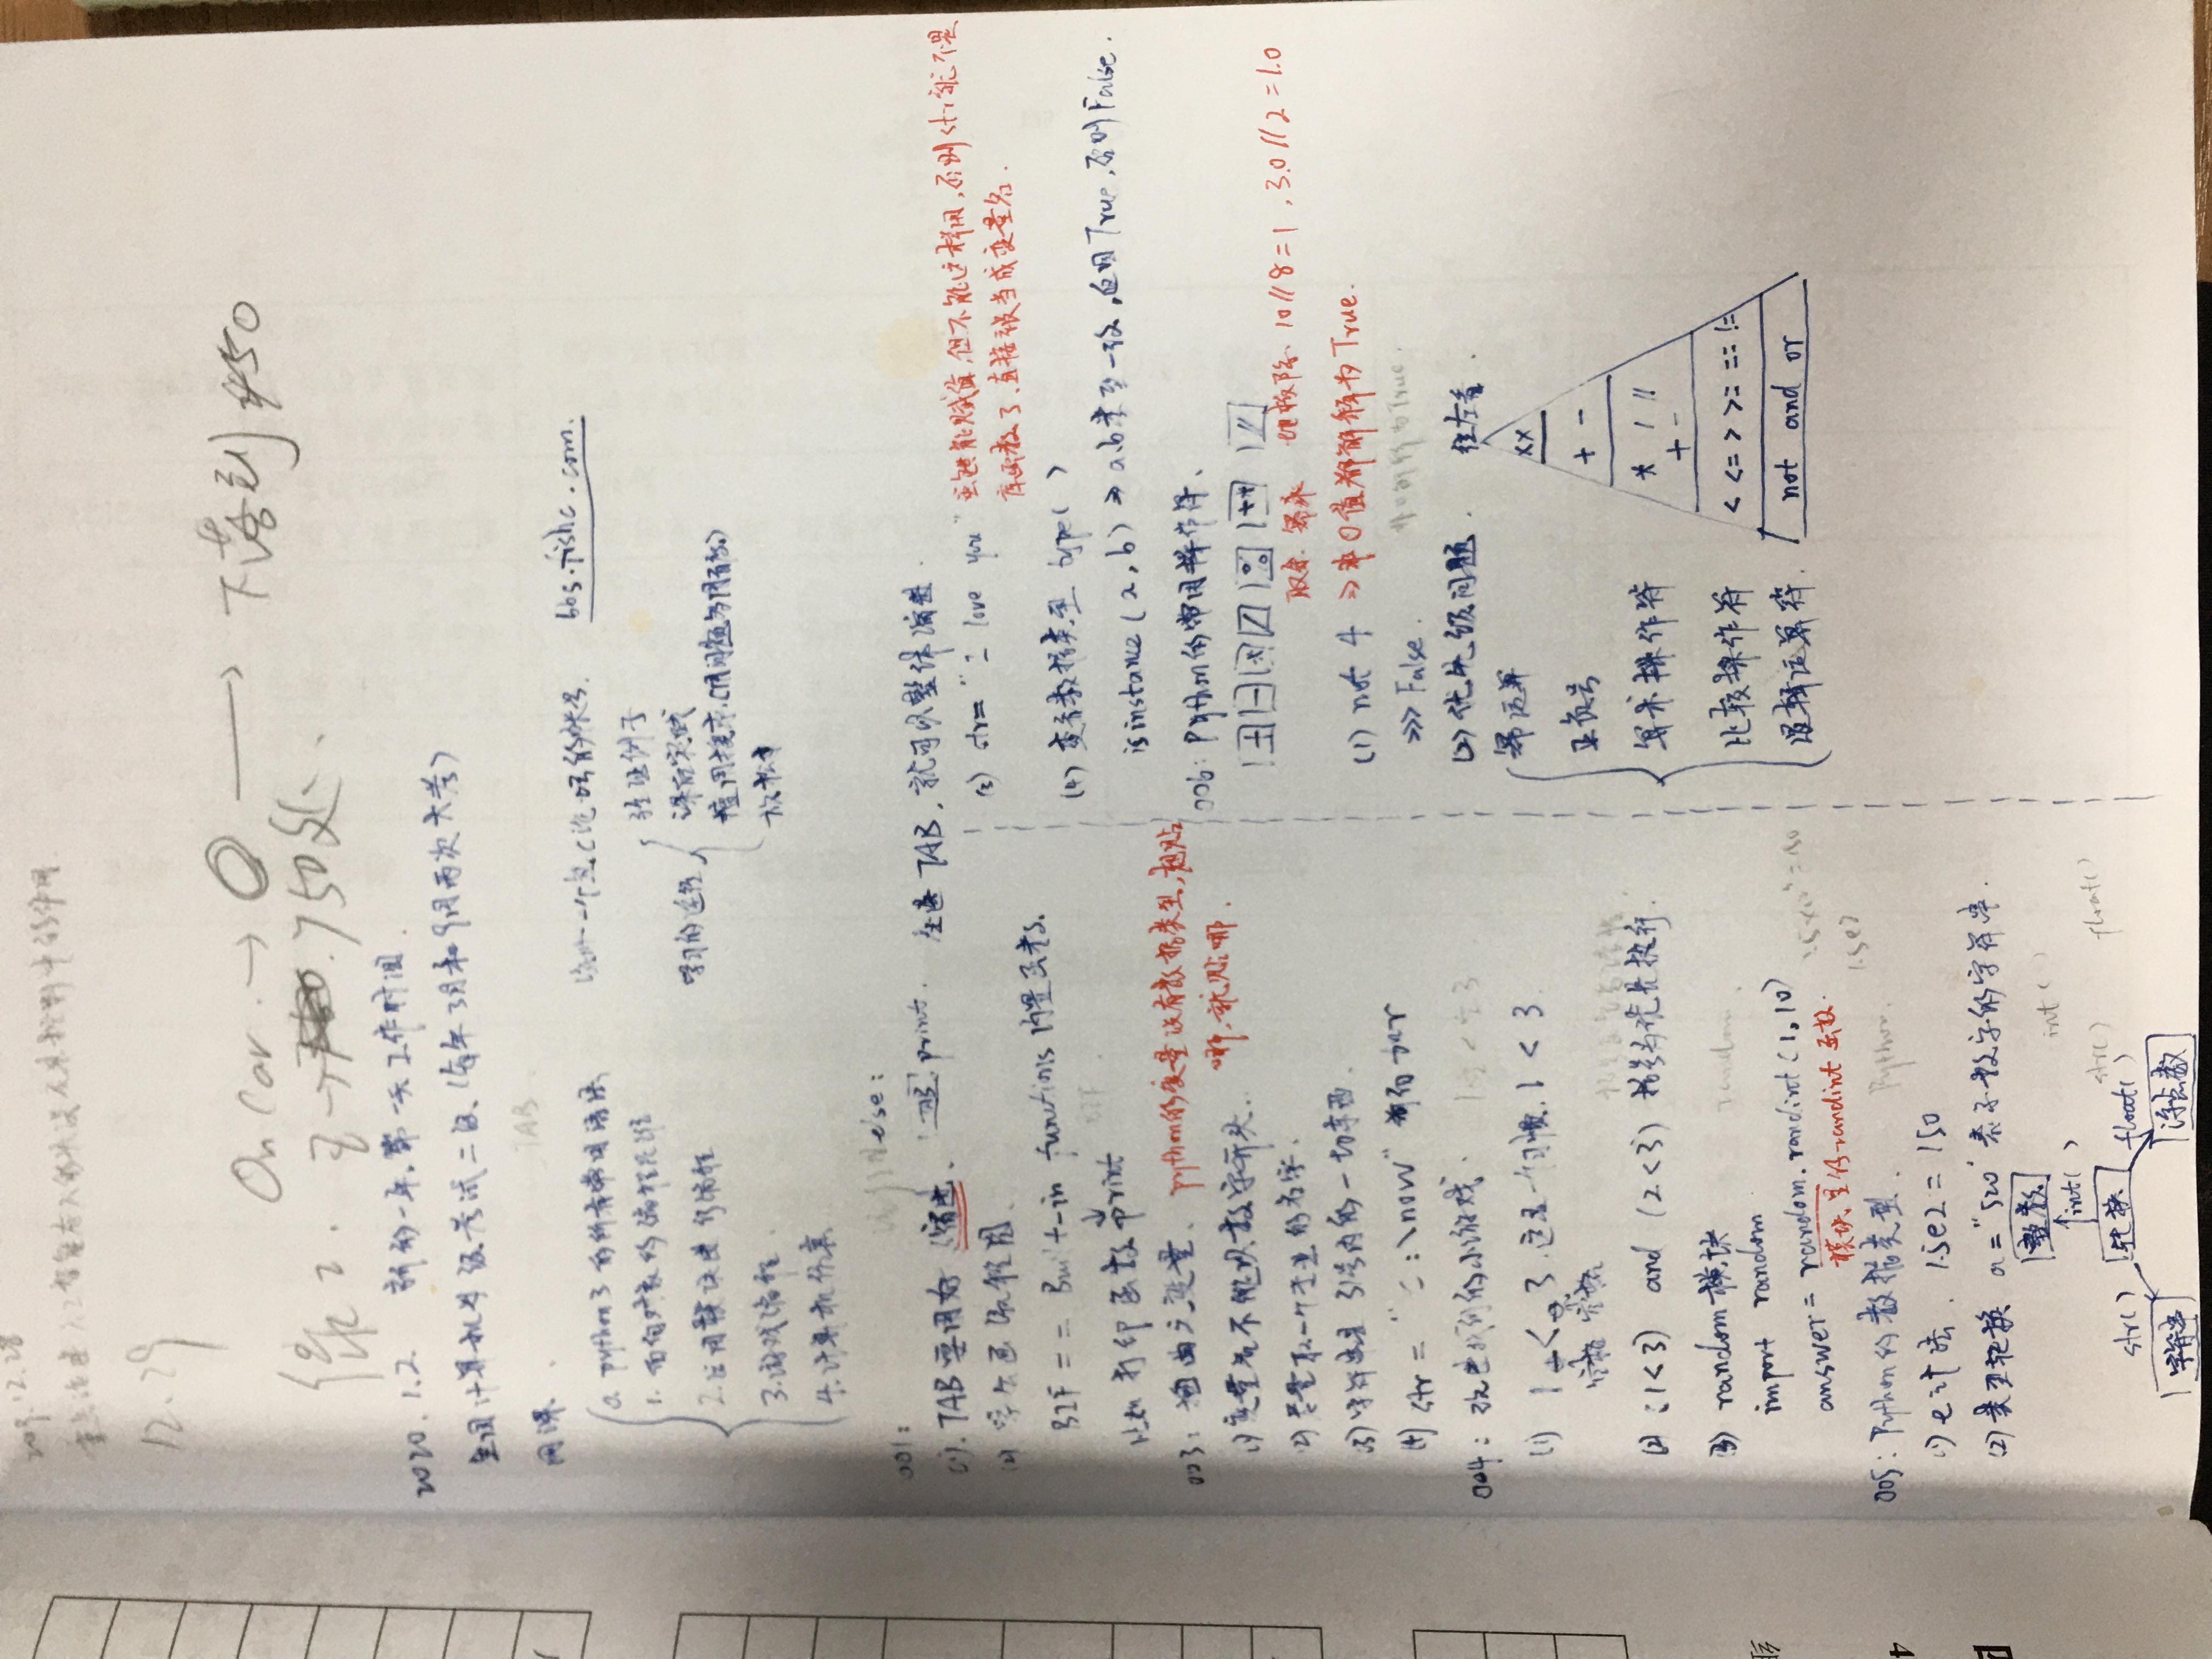 2019.12.28
12.29
On Car → O → 下落到 450
停2. Z → 750处.
2020.1.2. 新的一年,第一天工作时间.
全国计算机等级考试二级、(每年3月和9月两次大考)
TAB
网课.
0. python3 的所有常用语法
1. 面向对象的编程思维
2. 应用模块进行编程
3. 游戏编程.
4. 计算机仿真
注册一个鱼C论坛的账号. bbs.fishc.com.
学习的途径
验证例子
课后实践
擅用搜索.(用问题多用百度)
else:
001:
(1). TAB要用好 缩进. TAB print. 全选 TAB, 就可以整体缩进.
(2) 学会画流程图.
BIF == Built-in functions 内置函数.
BIF
比如 打印函数 print
003: 插曲之变量. python的变量没有数据类型,想贴
哪,就贴哪.
(1) 变量名不能以数字开头.
(2) 尽量取一个专业的名字.
(3) 字符串是 引号内的一切东西.
(4) str = "C:\now"
004: 改进我们的小游戏.
(1) 1 < 3 这是一个习惯. 1 < 3.
空格 空格
(2) (1<3) and (2<3) 括号为优先执行.
(3) random模块
random
import random
answer = random.randint(1,10)
模块里的randint函数.
1.5×10² = 150
1.5e2
005: Python的数据类型.
Python.
(1) e计法. 1.5e2 = 150
(2) 类型转换 a = "520" 表示数字的字符串.
整数
int()
int()
str() 转换 float()
str()
float()
字符串
浮点数
(3) str = "I love you" 虽能赋值,但不能这样用,否则str就不是
库函数了,直接被当成变量名.
(4) 查看数据类型 type( )
isinstance(a,b) → a.b类型一致,返回True,否则False.
006: Python的常用操作符.
+ - * / % ** //
取余 幂乘 地板除 10//8=1, 3.0//2=1.0
(1) not 4 → 非0值都解释为True.
>>> False.
非0解释为True.
(2) 优先级问题. 往左看.
幂运算 **
正负号 + -
算术操作符 * / //
+ -
比较操作符 < <= > >= == !=
逻辑运算符. not and or